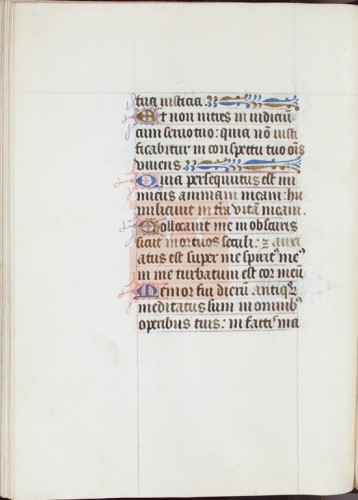 tua iusticia.
Et non intres in iudiciū
cum seruo tuo: quia nō iusti
ficabitur in conspectu tuo oīs
viuens
Quia persequutus est ini
micus animam meam: hu
miliauit in tr̄a vitā meam.
Collocauit me in obscuris
sicut mortuos seculi: ⁊ anxi
atus est super me spiritꝰ meꝰ
in me turbatum est cor meū
Memor fui dierū antiquoꝝ
meditatus sum in omnibꝰ
operibus tuis: in factis ma